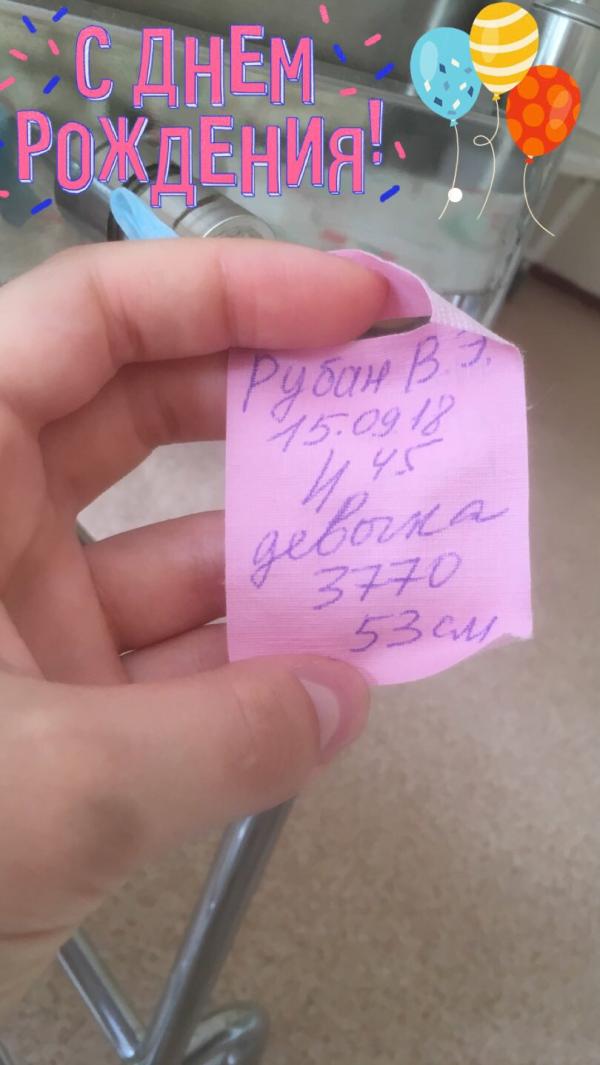 С ДНЕМ
РОЖДЕНИЯ!
Рубан В.Э.
15.09.18
4 45
девочка
3770
53 см